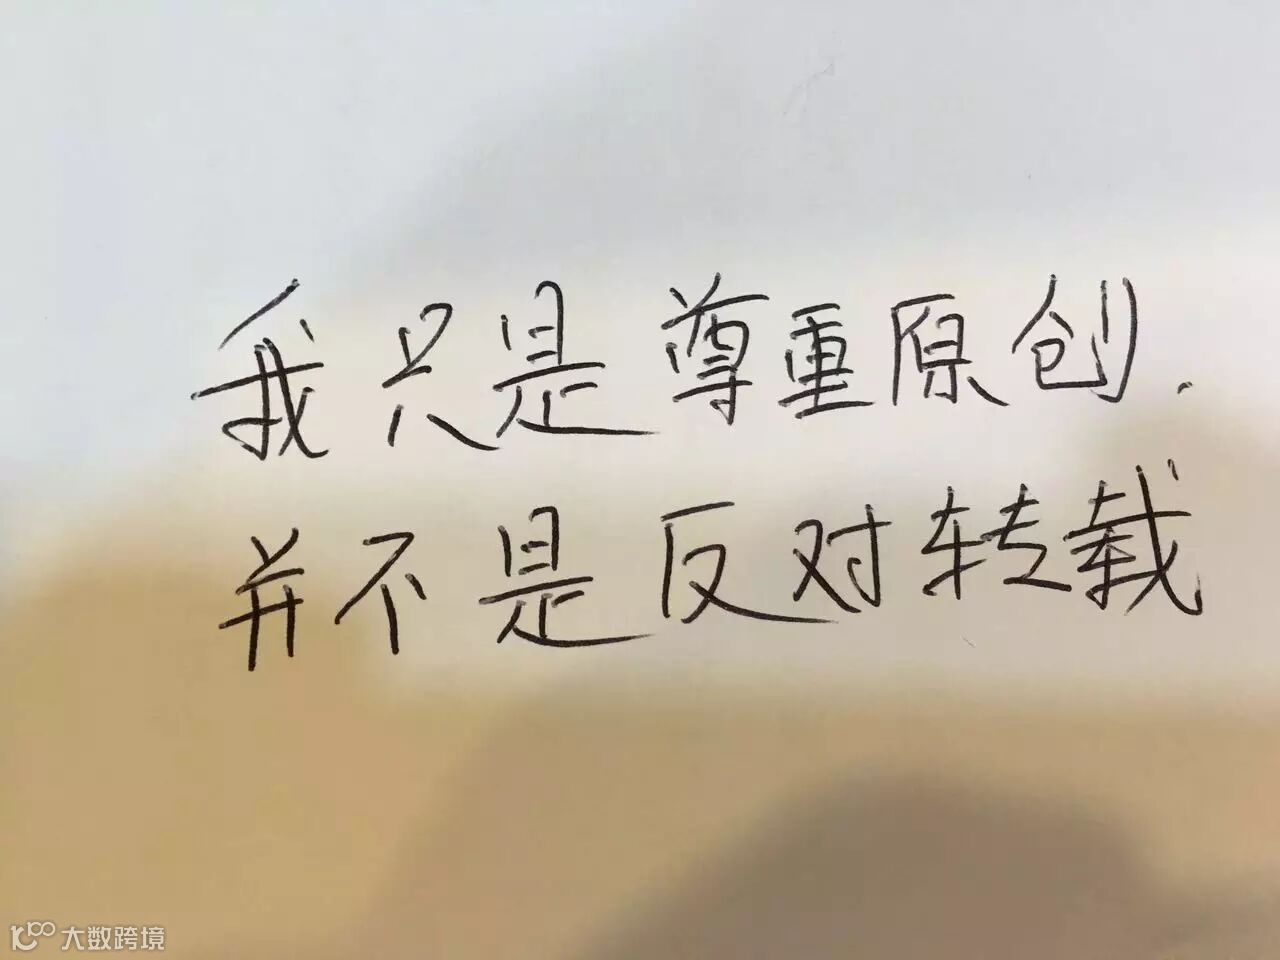 我只是尊重原创.
并不是反对转载
大数跨境